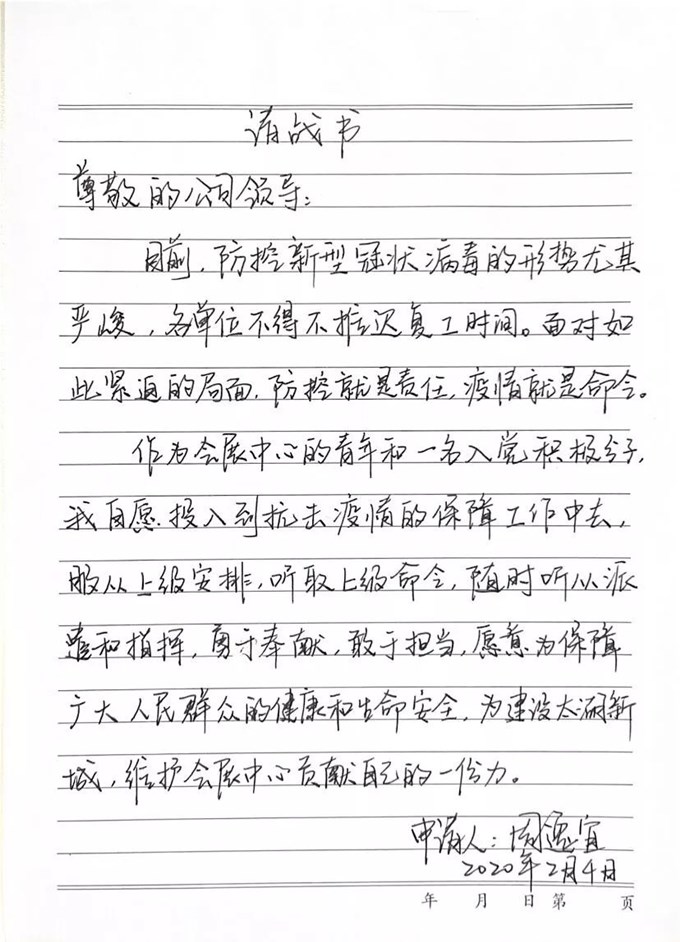 请战书
尊敬的公司领导：
目前，防控新型冠状病毒的形势尤其
严峻，各单位不得不推迟复工时间。面对如
此紧迫的局面，防控就是责任，疫情就是命令。
作为会展中心的青年和一名入党积极分子，
我自愿投入到抗击疫情的保障工作中去，
服从上级安排，听取上级命令，随时听从派
遣和指挥，勇于奉献，敢于担当，愿意为保障
广大人民群众的健康和生命安全，为建设太湖新
城，维护会展中心贡献自己的一份力。
申请人：周逸宜
2020年2月4日
年 月 日 第 页